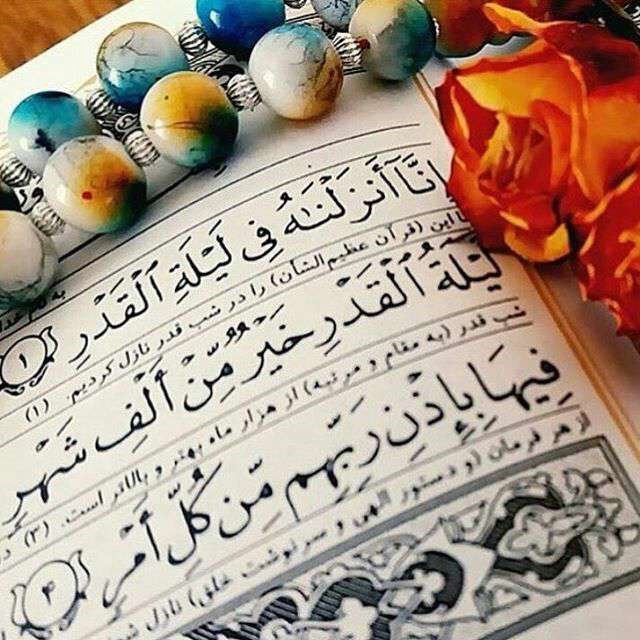 إِنَّا أَنزَلْنَاهُ فِي لَيْلَةِ ٱلْقَدْرِ ١
این (قرآن عظیم الشأن) را در شب قدر نازل کردیم. (۱)
لَيْلَةُ ٱلْقَدْرِ خَيْرٌ مِّنْ أَلْفِ شَهْرٍ
شب قدر (به مقام و مرتبه) از هزار ماه بهتر و بالاتر است. (۳)
فِيهَا بِإِذْنِ رَبِّهِم مِّن كُلِّ أَمْرٍ ۴
از هر فرمان (و دستور الهی و سرنوشت خلق) نازل